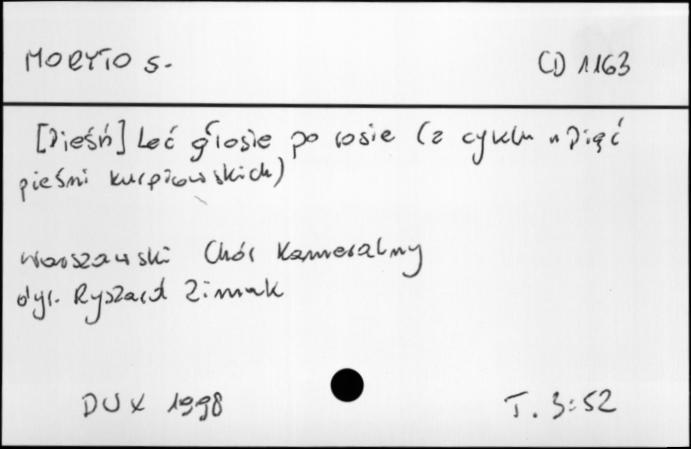 MORYTO S.
CD 1163
[Pieśń] Leć głosie po rosie (z cyklu "Pięć
pieśni kurpiowskich)
Warszawski Chór Kameralny
dyr. Ryszard Zimak
DUX 1998
T. 3:52